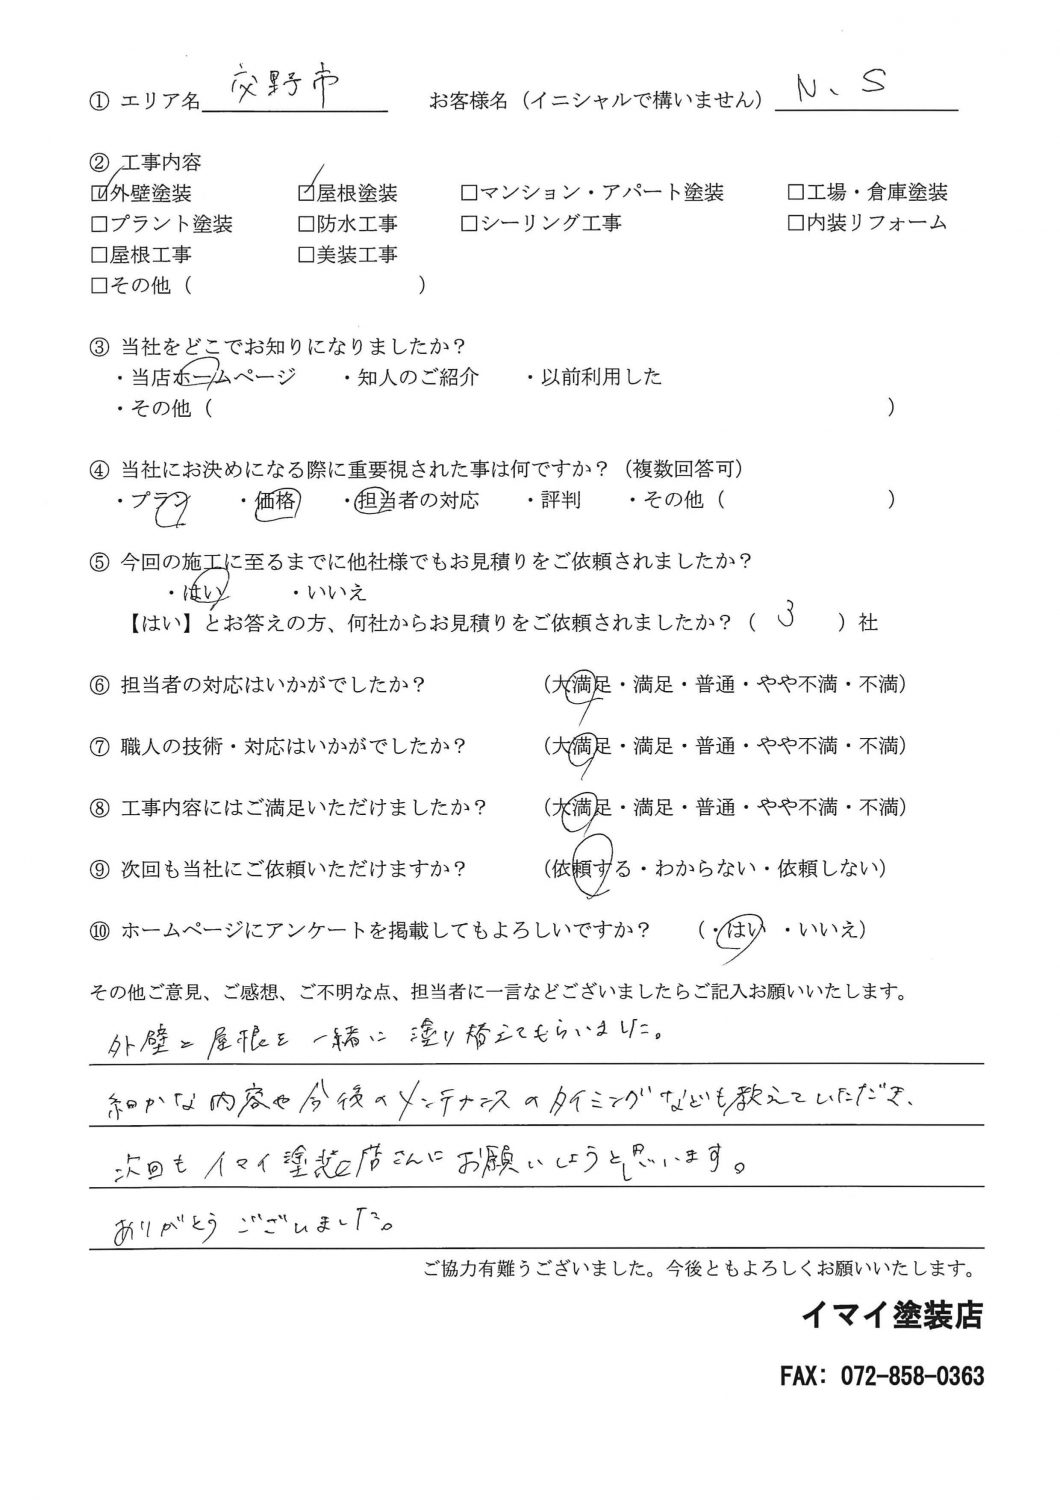 ① エリア名 交野市 お客様名（イニシャルで構いません） N、S
② 工事内容
☑外壁塗装 ☑屋根塗装 □マンション・アパート塗装 □工場・倉庫塗装
□プラント塗装 □防水工事 □シーリング工事 □内装リフォーム
□屋根工事 □美装工事
□その他（ ）
③ 当社をどこでお知りになりましたか？
・当店ホームページ ・知人のご紹介 ・以前利用した
・その他（ ）
④ 当社にお決めになる際に重要視された事は何ですか？（複数回答可）
・プラン ・価格 ・担当者の対応 ・評判 ・その他（ ）
⑤ 今回の施工に至るまでに他社様でもお見積りをご依頼されましたか？
・はい ・いいえ
【はい】とお答えの方、何社からお見積りをご依頼されましたか？（ 3 ）社
⑥ 担当者の対応はいかがでしたか？ （大満足・満足・普通・やや不満・不満）
⑦ 職人の技術・対応はいかがでしたか？ （大満足・満足・普通・やや不満・不満）
⑧ 工事内容にはご満足いただけましたか？ （大満足・満足・普通・やや不満・不満）
⑨ 次回も当社にご依頼いただけますか？ （依頼する・わからない・依頼しない）
⑩ ホームページにアンケートを掲載してもよろしいですか？ （・はい ・いいえ）
その他ご意見、ご感想、ご不明な点、担当者に一言などございましたらご記入お願いいたします。
外壁と屋根を一緒に塗り替えてもらいました。
細かな内容や今後のメンテナンスのタイミングなども教えていただき、
次回もイマイ塗装店さんにお願いしようと思います。
ありがとうございました。
ご協力有難うございました。今後ともよろしくお願いいたします。
イマイ塗装店
FAX: 072-858-0363